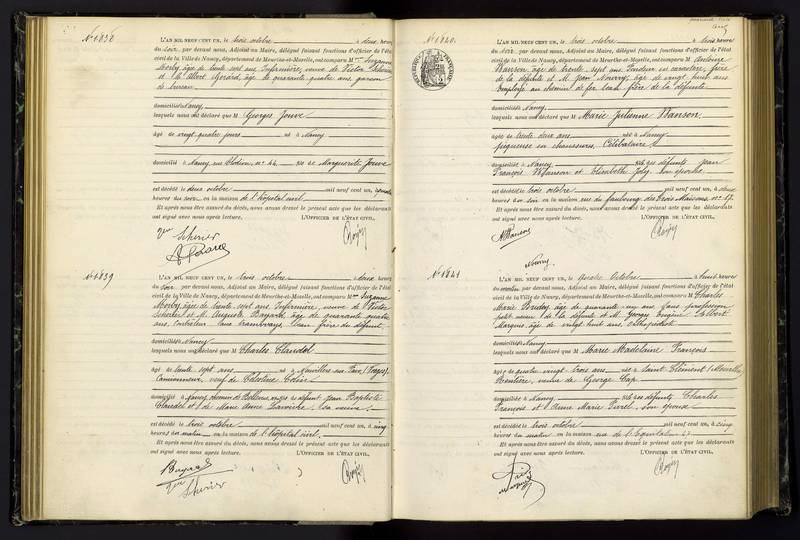 N° 1838
L'AN MIL NEUF CENT UN, le trois octobre à deux heures
du soir, par devant nous, Adjoint au Maire, délégué faisant fonctions d'officier de l'état
civil de la Ville de Nancy, département de Meurthe-et-Moselle, ont comparu Mme Suzanne
âgée de trente sept ans, Infirmière, veuve de Victor
et M. Albert Gérard, âgé de quarante quatre ans, garçon
de bureau
domiciliés à Nancy
lesquels nous ont déclaré que M Georges Jouve
âgé de vingt quatre jours né à Nancy
domicilié à Nancy rue n° 44, fils de Marguerite Jouve
est décédé le deux octobre mil neuf cent un, à
heures du soir en la maison de l'hôpital civil,
Et après nous être assuré du décès, nous avons dressé le présent acte que les déclarants
ont signé avec nous après lecture. L'OFFICIER DE L'ÉTAT CIVIL,
N° 1839
L'AN MIL NEUF CENT UN, le trois octobre à deux heures
du soir, par devant nous, Adjoint au Maire, délégué faisant fonctions d'officier de l'état
civil de la Ville de Nancy, département de Meurthe-et-Moselle, ont comparu Mme Suzanne
âgée de trente sept ans, Infirmière, veuve de Victor
et M. Auguste Bayard, âgé de quarante quatre
ans, beau frère du défunt
domiciliés à Nancy
lesquels nous ont déclaré que M Charles Claudel
âgé de trente sept ans né à
veuf de Célestine
domicilié à Nancy, fils de défunt Jean Baptiste
Claudel et de Marie Anne sa veuve
est décédé le trois octobre mil neuf cent un, à cinq
heures du matin en la maison de l'hôpital civil,
Et après nous être assuré du décès, nous avons dressé le présent acte que les déclarants
ont signé avec nous après lecture. L'OFFICIER DE L'ÉTAT CIVIL,
Bayard
N° 1840
L'AN MIL NEUF CENT UN, le trois octobre à trois heures
du soir, par devant nous, Adjoint au Maire, délégué faisant fonctions d'officier de l'état
civil de la Ville de Nancy, département de Meurthe-et-Moselle, ont comparu M Antoine
Wanson, âgé de trente sept ans, frère
de la défunte et M. Jean Nourry, âgé de vingt huit ans
Employé au chemin de fer, beau frère de la défunte
domiciliés à Nancy
lesquels nous ont déclaré que M Marie Julienne Wanson,
âgée de trente deux ans née à Nancy
piqueuse en chaussures, Célibataire
domiciliée à Nancy, fille des défunts Jean
François Wanson et Elisabeth Joly, son épouse
est décédée le trois octobre mil neuf cent un, à
heures du soir en la maison rue du faubourg des trois Maisons n° 57,
Et après nous être assuré du décès, nous avons dressé le présent acte que les déclarants
ont signé avec nous après lecture. L'OFFICIER DE L'ÉTAT CIVIL,
Nourry
N° 1841
L'AN MIL NEUF CENT UN, le quatre Octobre à huit heures
du matin, par devant nous, Adjoint au Maire, délégué faisant fonctions d'officier de l'état
civil de la Ville de Nancy, département de Meurthe-et-Moselle, ont comparu M Charles
Marie âgé de quarante un ans, sans profession
petit neveu de la défunte et M. Georges Eugène Albert
Marquis, âgé de vingt huit ans, orthopédiste
domiciliés à Nancy
lesquels nous ont déclaré que M Marie Madeleine François
âgée de quatre vingt trois ans née à Saint Clément (Meurthe)
Rentière, veuve de George
domiciliée à Nancy fille des défunts Charles
François et Anne Marie son épouse
est décédée le trois octobre mil neuf cent un, à cinq
heures du matin en la maison rue de l'Equitation 47
Et après nous être assuré du décès, nous avons dressé le présent acte que les déclarants
ont signé avec nous après lecture. L'OFFICIER DE L'ÉTAT CIVIL,